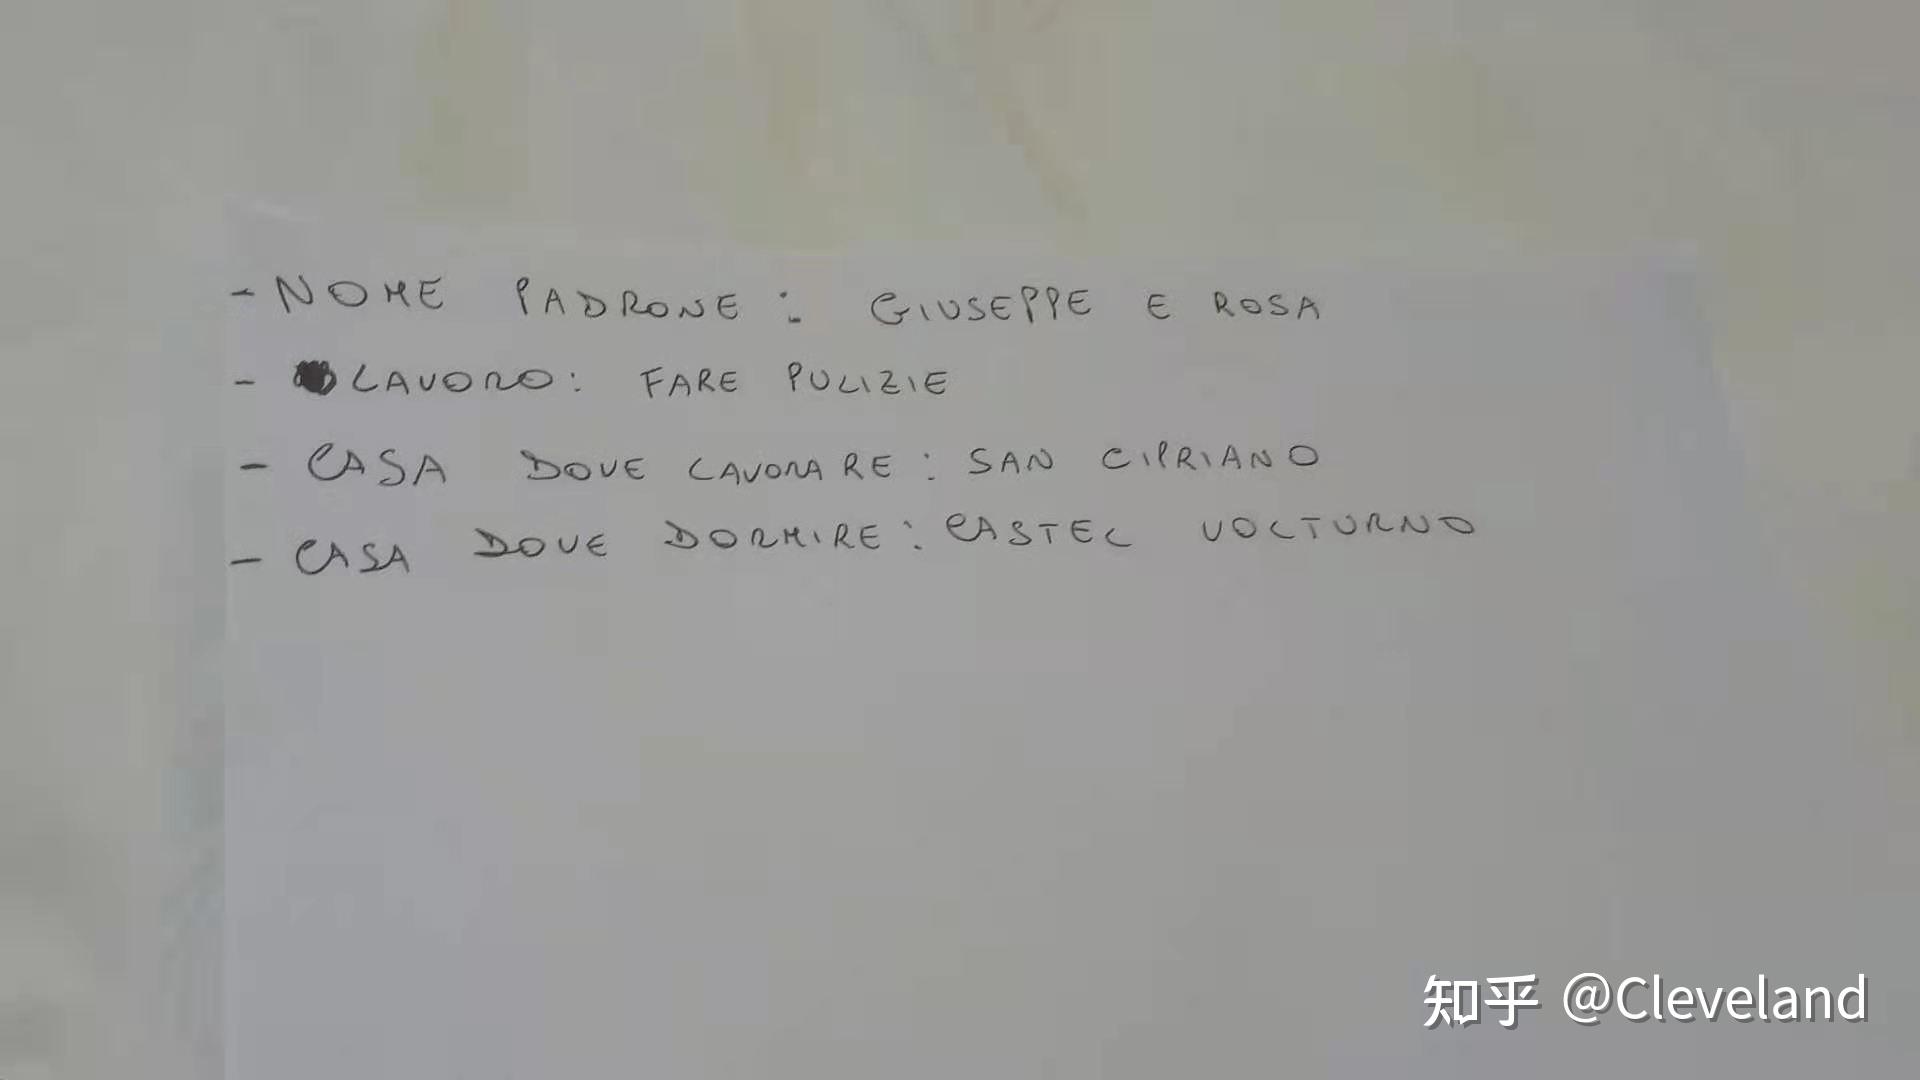 - NOME PADRONE: GIUSEPPE E ROSA
- LAVORO: FARE PULIZIE
- CASA DOVE LAVORARE: SAN CIPRIANO
- CASA DOVE DORMIRE: CASTEL VOLTURNO
知乎 @Cleveland